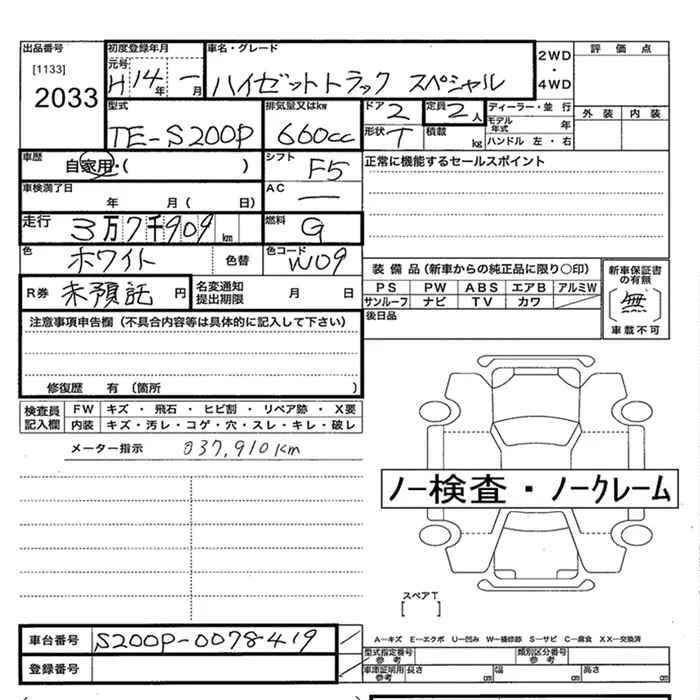 出品番号
[1133]
2033
初度登録年月
元号
H 14年 一月
車名・グレード
ハイゼットトラック スペシャル
2WD
・
4WD
評価点
外装 内装
型式
TE-S200P
排気量又はkw
660cc
ドア 2
形状 T
定員 2人
積載 kg
ディーラー・並行
モデル年式 年
ハンドル 左・右
車歴
自家用・( )
シフト
F5
車検満了日
年 月( 日)
AC
ー
正常に機能するセールスポイント
走行
3万7千909km
燃料
G
色
ホワイト
色替
色コード
W09
R券 未預託 円
名変通知
提出期限
月 日
装備品(新車からの純正品に限り○印)
PS PW ABS エアB アルミW
サンルーフ ナビ TV カワ
新車保証書
の有無
〔無〕
車載不可
後日品
注意事項申告欄(不具合内容等は具体的に記入して下さい)
修復歴 有(箇所 )
検査員
記入欄
FW キズ・飛石・ヒビ割・リペア跡・X要
内装 キズ・汚レ・コゲ・穴・スレ・キレ・破レ
メーター指示 037,910km
ノー検査・ノークレーム
スペアT
[ ]
車台番号 S200P-0078419
登録番号
A−キズ E−エクボ U−凹み W−補修跡 S−サビ C−腐食 XX−交換済
型式指定番号
参考
類別区分番号
参考
車庫証明用
参考
長さ cm
幅 cm
高さ cm